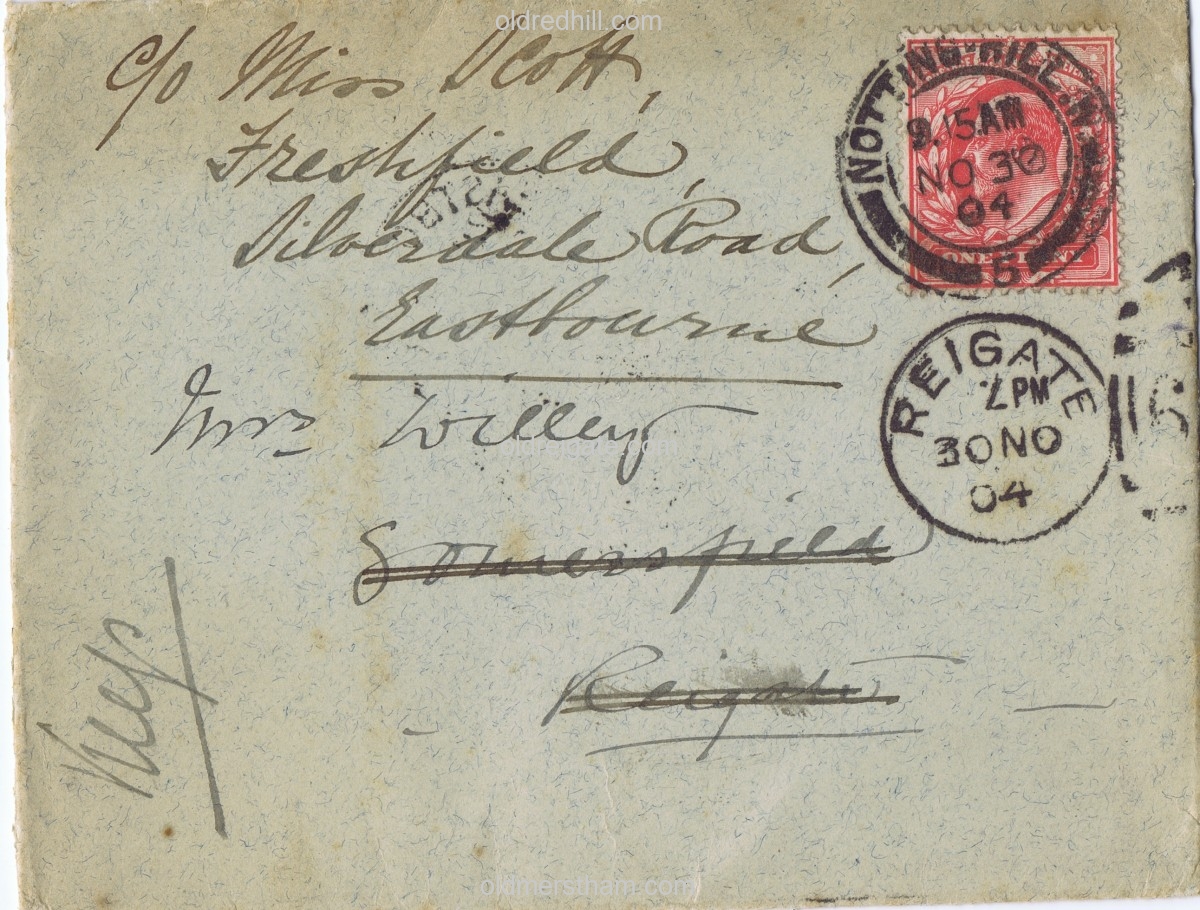 oldredhill.com
c/o Miss Scott,
Freshfield,
Silverdale Road,
Eastbourne
Mrs Willey
Somersfield
Reigate
Keep
NOTTING-HILL.
9.15AM
NO 30
04
5
ONE PENNY
REIGATE
7 PM
30 NO
04
oldmerstham.com